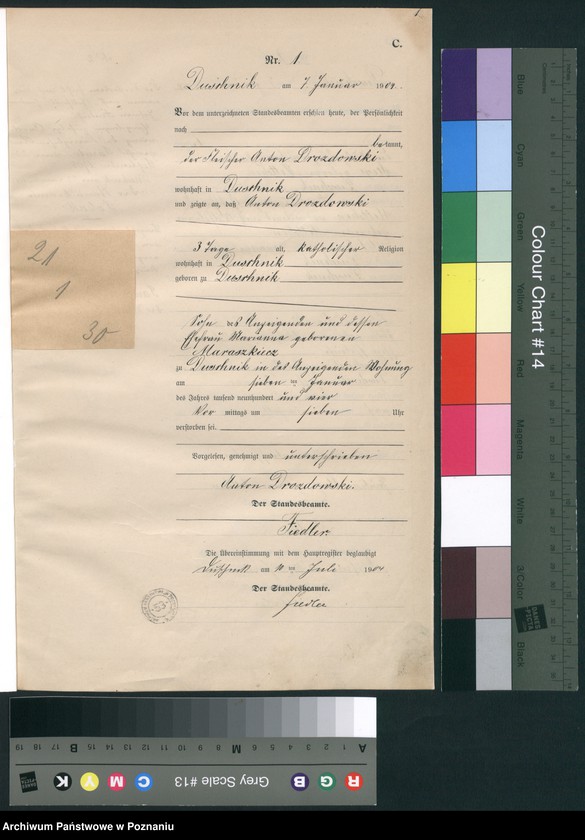 1.
C.
Nr. 1
Duschnik am 7. Januar 1904.
Vor dem unterzeichneten Standesbeamten erschien heute, der Persönlichkeit
nach
bekannt,
der Fleischer Anton Drozdowski
wohnhaft in Duschnik
und zeigte an, daß Anton Drozdowski
3 Tage alt, katholischer Religion
wohnhaft in Duschnik
geboren zu Duschnik
Sohn des Anzeigenden und dessen
Ehefrau Marianna geborenen
zu Duschnik in des Anzeigenden Wohnung
am sieben ten Januar
des Jahres tausend neunhundert und vier
Vor mittags um sieben Uhr
verstorben sei.
Vorgelesen, genehmigt und unterschrieben
Anton Drozdowski.
Der Standesbeamte.
Fiedler
Die Übereinstimmung mit dem Hauptregister beglaubigt
Duschnik am ten Juli 1904
Der Standesbeamte.
Fiedler
21
1
30
53
Colour Chart #14
Blue
Cyan
Green
Yellow
Red
Magenta
White
3/Color
Black
Grey Scale #13
A 1 2 3 4 5 6 M 8 9 10 11 12 13 14 15 B 17 18 19
R G B C M Y K
Archiwum Państwowe w Poznaniu